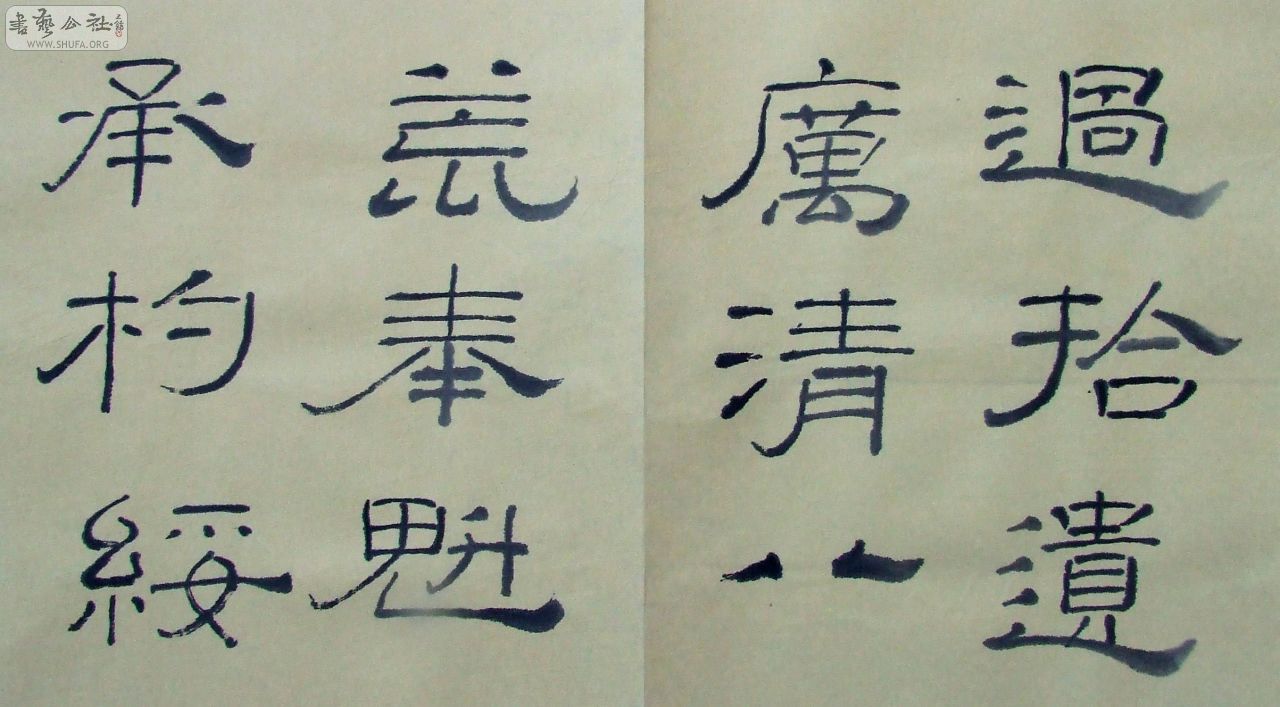 書藝公社
WWW.SHUFA.ORG
過拾遺
厲清八
荒奉魁
承杓綏